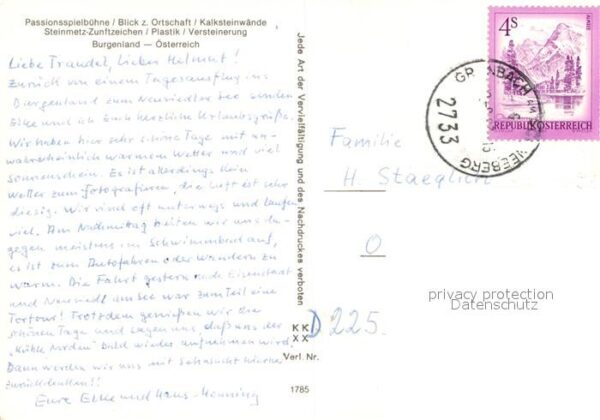 Passionsspielbühne / Blick z. Ortschaft / Kalksteinwände
Steinmetz-Zunftzeichen / Plastik / Versteinerung
Burgenland — Österreich
Liebe Traudel, lieber Helmut!
Zurück von einem Tagesausflug ins
Burgenland zum Neusiedler See senden
Elke und ich Euch herzliche Urlaubsgrüße.
Wir haben hier sehr schöne Tage mit un-
wahrscheinlich warmem Wetter und viel
Sonnenschein. Es ist allerdings kein
Wetter zum Fotografieren, die Luft ist sehr
diesig. Wir sind oft unterwegs und laufen
viel. Am Nachmittag halten wir uns da-
gegen meistens im Schwimmbad auf,
es ist zum Autofahren oder Wandern zu
warm. Die Fahrt gestern nach Eisenstadt
und Neusiedl am See war zum Teil eine
Tortour! Trotzdem genießen wir die
schönen Tage und sagen uns, daß uns der
"Kühle Norden" bald wieder aufnehmen wird.
Dann werden wir uns mit Sehnsucht hierher
zurückdenken!!
Eure Elke und Hans-Henning
Jede Art der Vervielfältigung und des Nachdruckes verboten
KK
XX
Verl. Nr.
1785
4S
ALMSEE
REPUBLIK ÖSTERREICH
GRÜNBACH AM SCHNEEBERG
2733
Familie
H. Staeglich
O
D 225.
privacy protection
Datenschutz